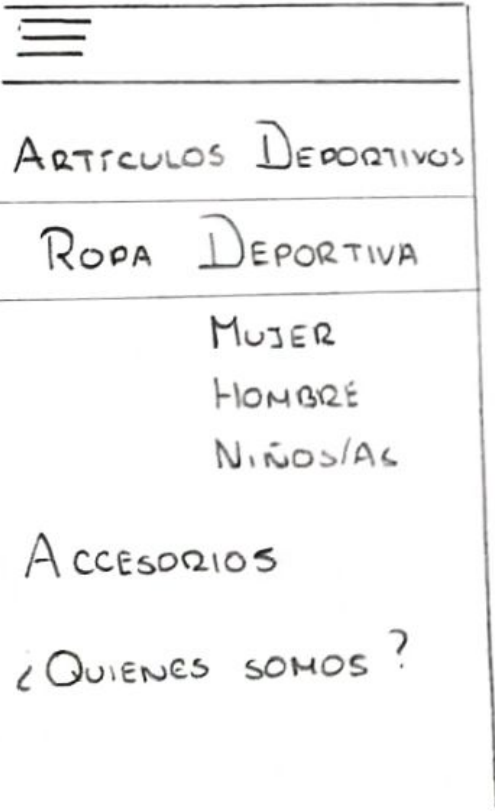 ARTÍCULOS DEPORTIVOS
ROPA DEPORTIVA
MUJER
HOMBRE
NIÑOS/AS
ACCESORIOS
¿QUIENES SOMOS?